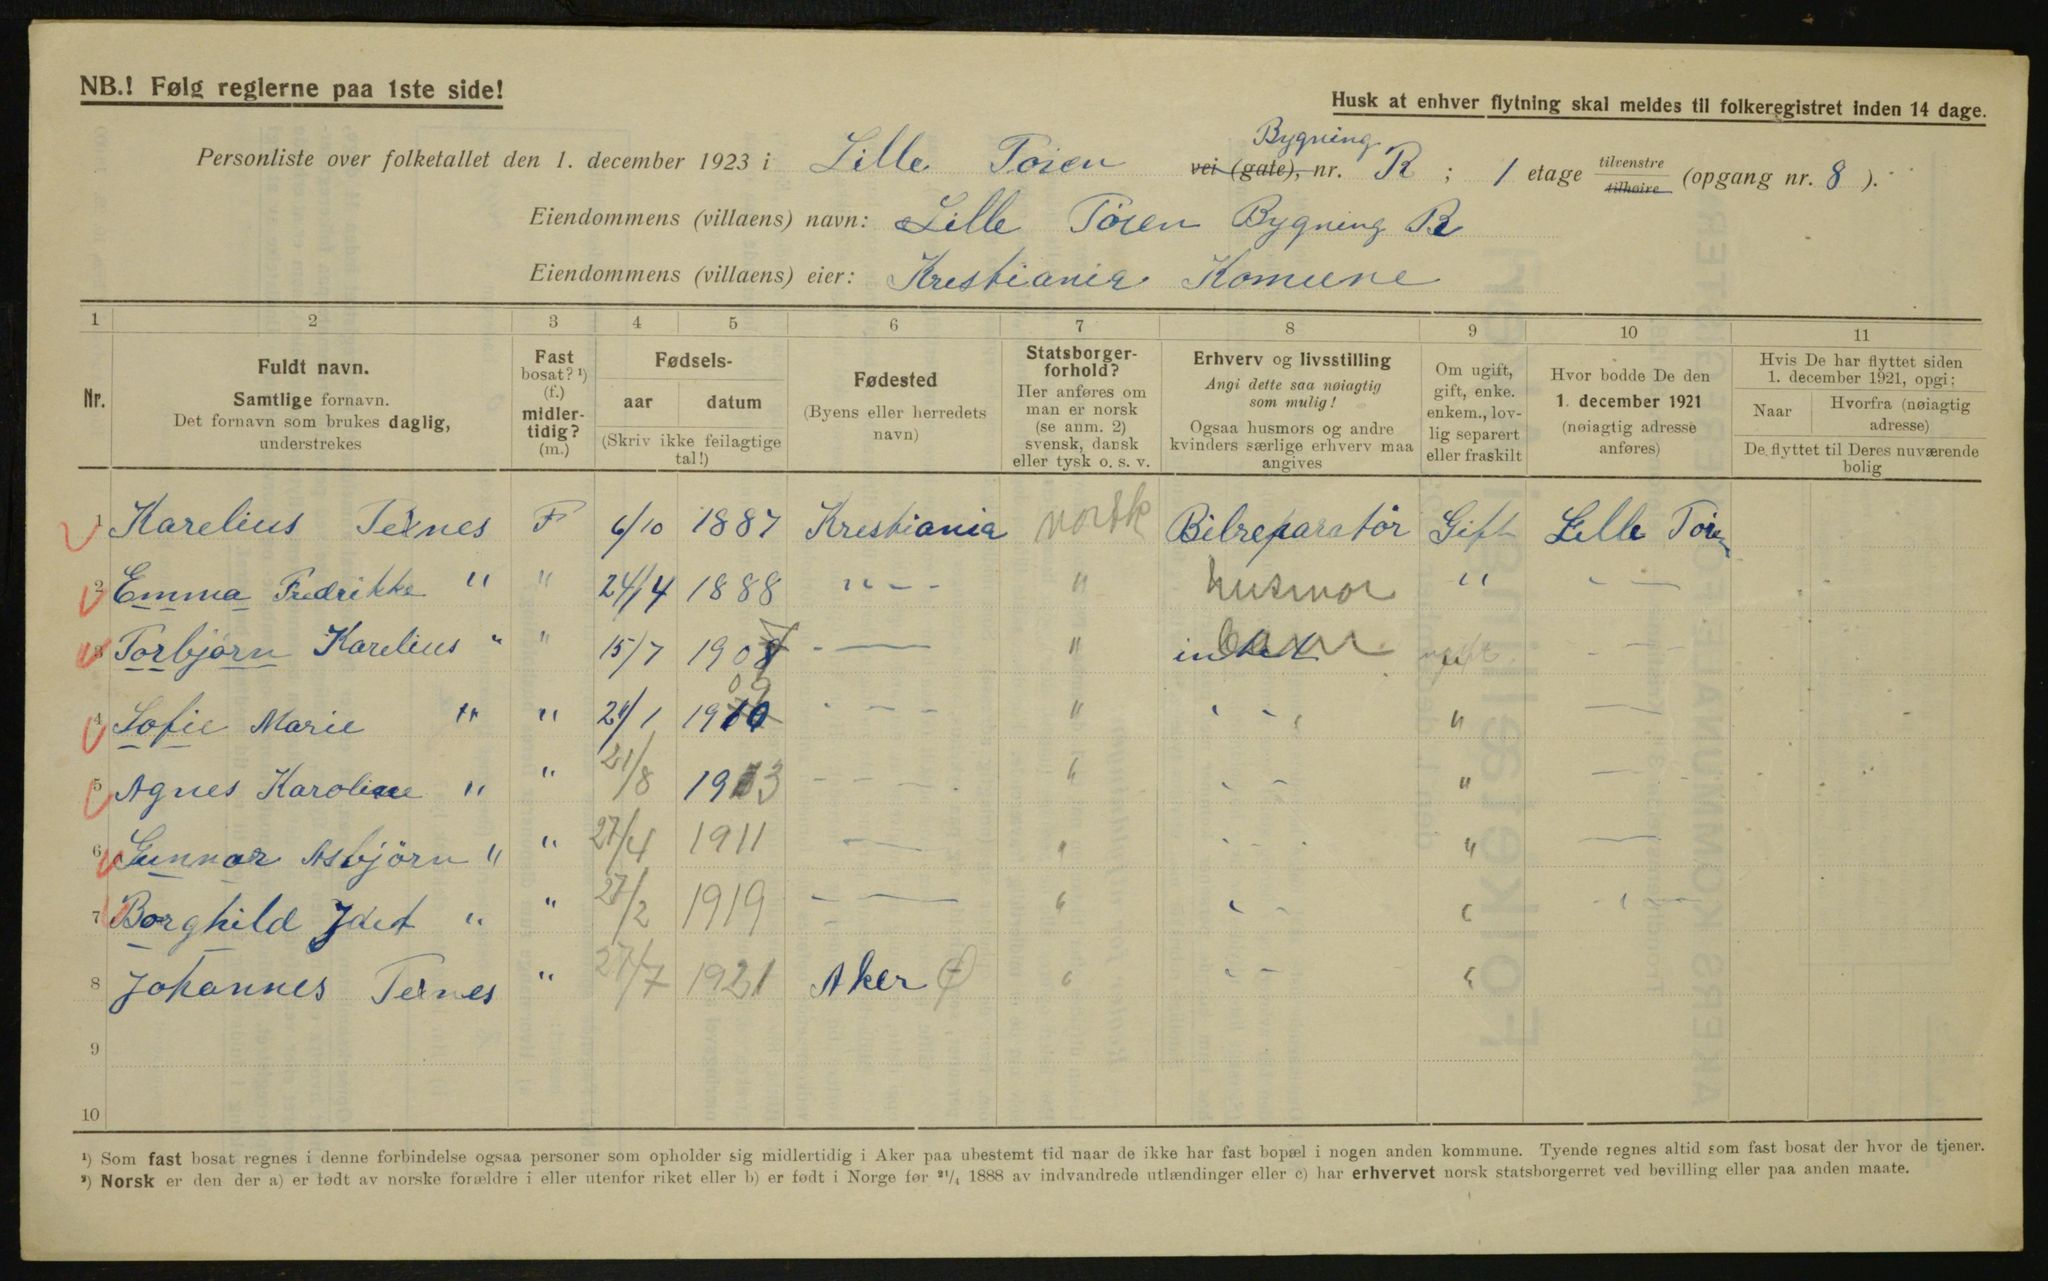 NB.! Følg reglerne paa 1ste side!
Husk at enhver flytning skal meldes til folkeregistret inden 14 dage.
Personliste over folketallet den 1. december 1923 i Lille Toien vei (gate), nr. Bygning R ; 1 etage tilvenstre tilhøire (opgang nr. 8 ).
Eiendommens (villaens) navn: Lille Töien Bygning R
Eiendommens (villaens) eier: Krestiania Komune
1 2 3 4 5 6 7 8 9 10 11
Nr.
Fuldt navn.
Samtlige fornavn.
Det fornavn som brukes daglig, understrekes
Fast bosat? ¹) (f.) midlertidig? (m.)
Fødsels-
aar datum
(Skriv ikke feilagtige tal!)
Fødested
(Byens eller herredets navn)
Statsborgerforhold?
Her anføres om man er norsk (se anm. 2) svensk, dansk eller tysk o. s. v.
Erhverv og livsstilling
Angi dette saa nøiagtig som mulig!
Ogsaa husmors og andre kvinders særlige erhverv maa angives
Om ugift, gift, enke. enkem., lovlig separert eller fraskilt
Hvor bodde De den 1. december 1921 (nøiagtig adresse anføres)
Hvis De har flyttet siden 1. december 1921, opgi:
Naar Hvorfra (nøiagtig adresse)
De flyttet til Deres nuværende bolig
1 Karelius Ternes F 6/10 1887 Krestiania norsk Bilreparatør Gift Lille Toien
2 Emma Fredrikke " " 24/4 1888 " - - " husmor " - —
3 Torbjørn Karelius " " 15/7 1908 - — " barn ugift - —
4 Sofie Marie " " 2"/1 1910 09 - - - " " - " —
5 Agnes Karoline " " 21/8 1913 - - - " " - " —
6 Gunnar Asbjörn " " 27/4 1911 — " - - " —
7 Borghild " " 27/2 1919 - — " " - " - —
8 Johannes Ternes " 27/7 1921 Aker " " - "
9
10
¹) Som fast bosat regnes i denne forbindelse ogsaa personer som opholder sig midlertidig i Aker paa ubestemt tid naar de ikke har fast bopæl i nogen anden kommune. Tyende regnes altid som fast bosat der hvor de tjener.
²) Norsk er den der a) er født av norske forældre i eller utenfor riket eller b) er født i Norge før ²¹/₄ 1888 av indvandrede utlændinger eller c) har erhvervet norsk statsborgerret ved bevilling eller paa anden maate.